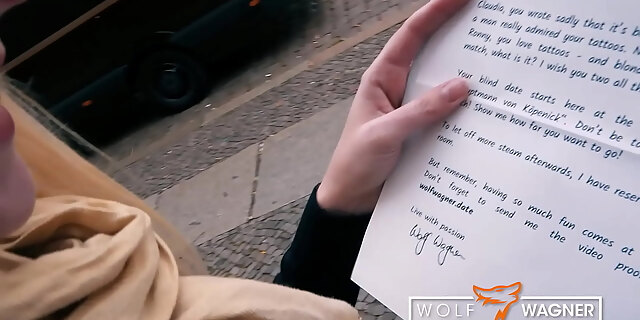 Claudia, you wrote sadly that it's b
a man really admired your tattoos. A
Ronny, you love tattoos - and blond
match, what is it? I wish you two all th
Your blind date starts here at the
ptmann von Köpenick". Don't be ta
Show me how far you want to go!
To let off more steam afterwards, I have reser
room.
But remember, having so much fun comes at
Don't forget to send me the video proo
wolfwagner.date
Live with passion
Wolf Wagner
WOLF WAGNER